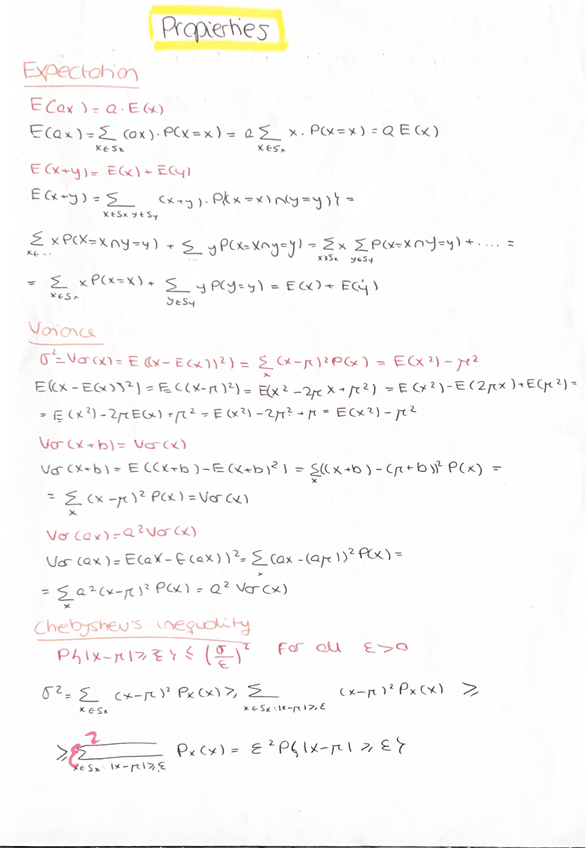 Propierties
Expectation
E(ax) = a · E(x)
E(ax) = Σ_{x∈Sx} (ax) · P(X=x) = a Σ_{x∈Sx} x · P(X=x) = a E(x)
E(x+y) = E(x) + E(y)
E(x+y) = Σ_{x∈Sx y∈Sy} (x+y) · P{(x=x) ∩ (y=y)} =
Σ_{x∈...} x P(X=x∩y=y) + Σ_{...} y P(x=x∩y=y) = Σ_{x∈Sx} x Σ_{y∈Sy} P(x=x∩y=y) + .... =
= Σ_{x∈Sx} x P(x=x) + Σ_{y∈Sy} y P(y=y) = E(x) + E(y)
Variance
σ² = Var(x) = E((x-E(x))²) = Σ_x (x-μ)² P(x) = E(x²) - μ²
E((x-E(x))²) = E((x-μ)²) = E(x² - 2μx + μ²) = E(x²) - E(2μx) + E(μ²) =
= E(x²) - 2μE(x) + μ² = E(x²) - 2μ² + μ = E(x²) - μ²
Var(x+b) = Var(x)
Var(x+b) = E((x+b) - E(x+b)²) = Σ_x ((x+b) - (μ+b))² P(x) =
= Σ_x (x-μ)² P(x) = Var(x)
Var(ax) = a² Var(x)
Var(ax) = E(ax - E(ax))² = Σ_x (ax - (aμ))² P(x) =
= Σ_x a² (x-μ)² P(x) = a² Var(x)
Chebyshev's inequality
P{|x-μ| ≥ ε} ≤ (σ/ε)² For all ε>0
σ² = Σ_{x∈Sx} (x-μ)² Px(x) ≥ Σ_{x∈Sx:|x-μ|≥ε} (x-μ)² Px(x) ≥
≥ ε² Σ_{x∈Sx:|x-μ|≥ε} Px(x) = ε² P{|x-μ| ≥ ε}